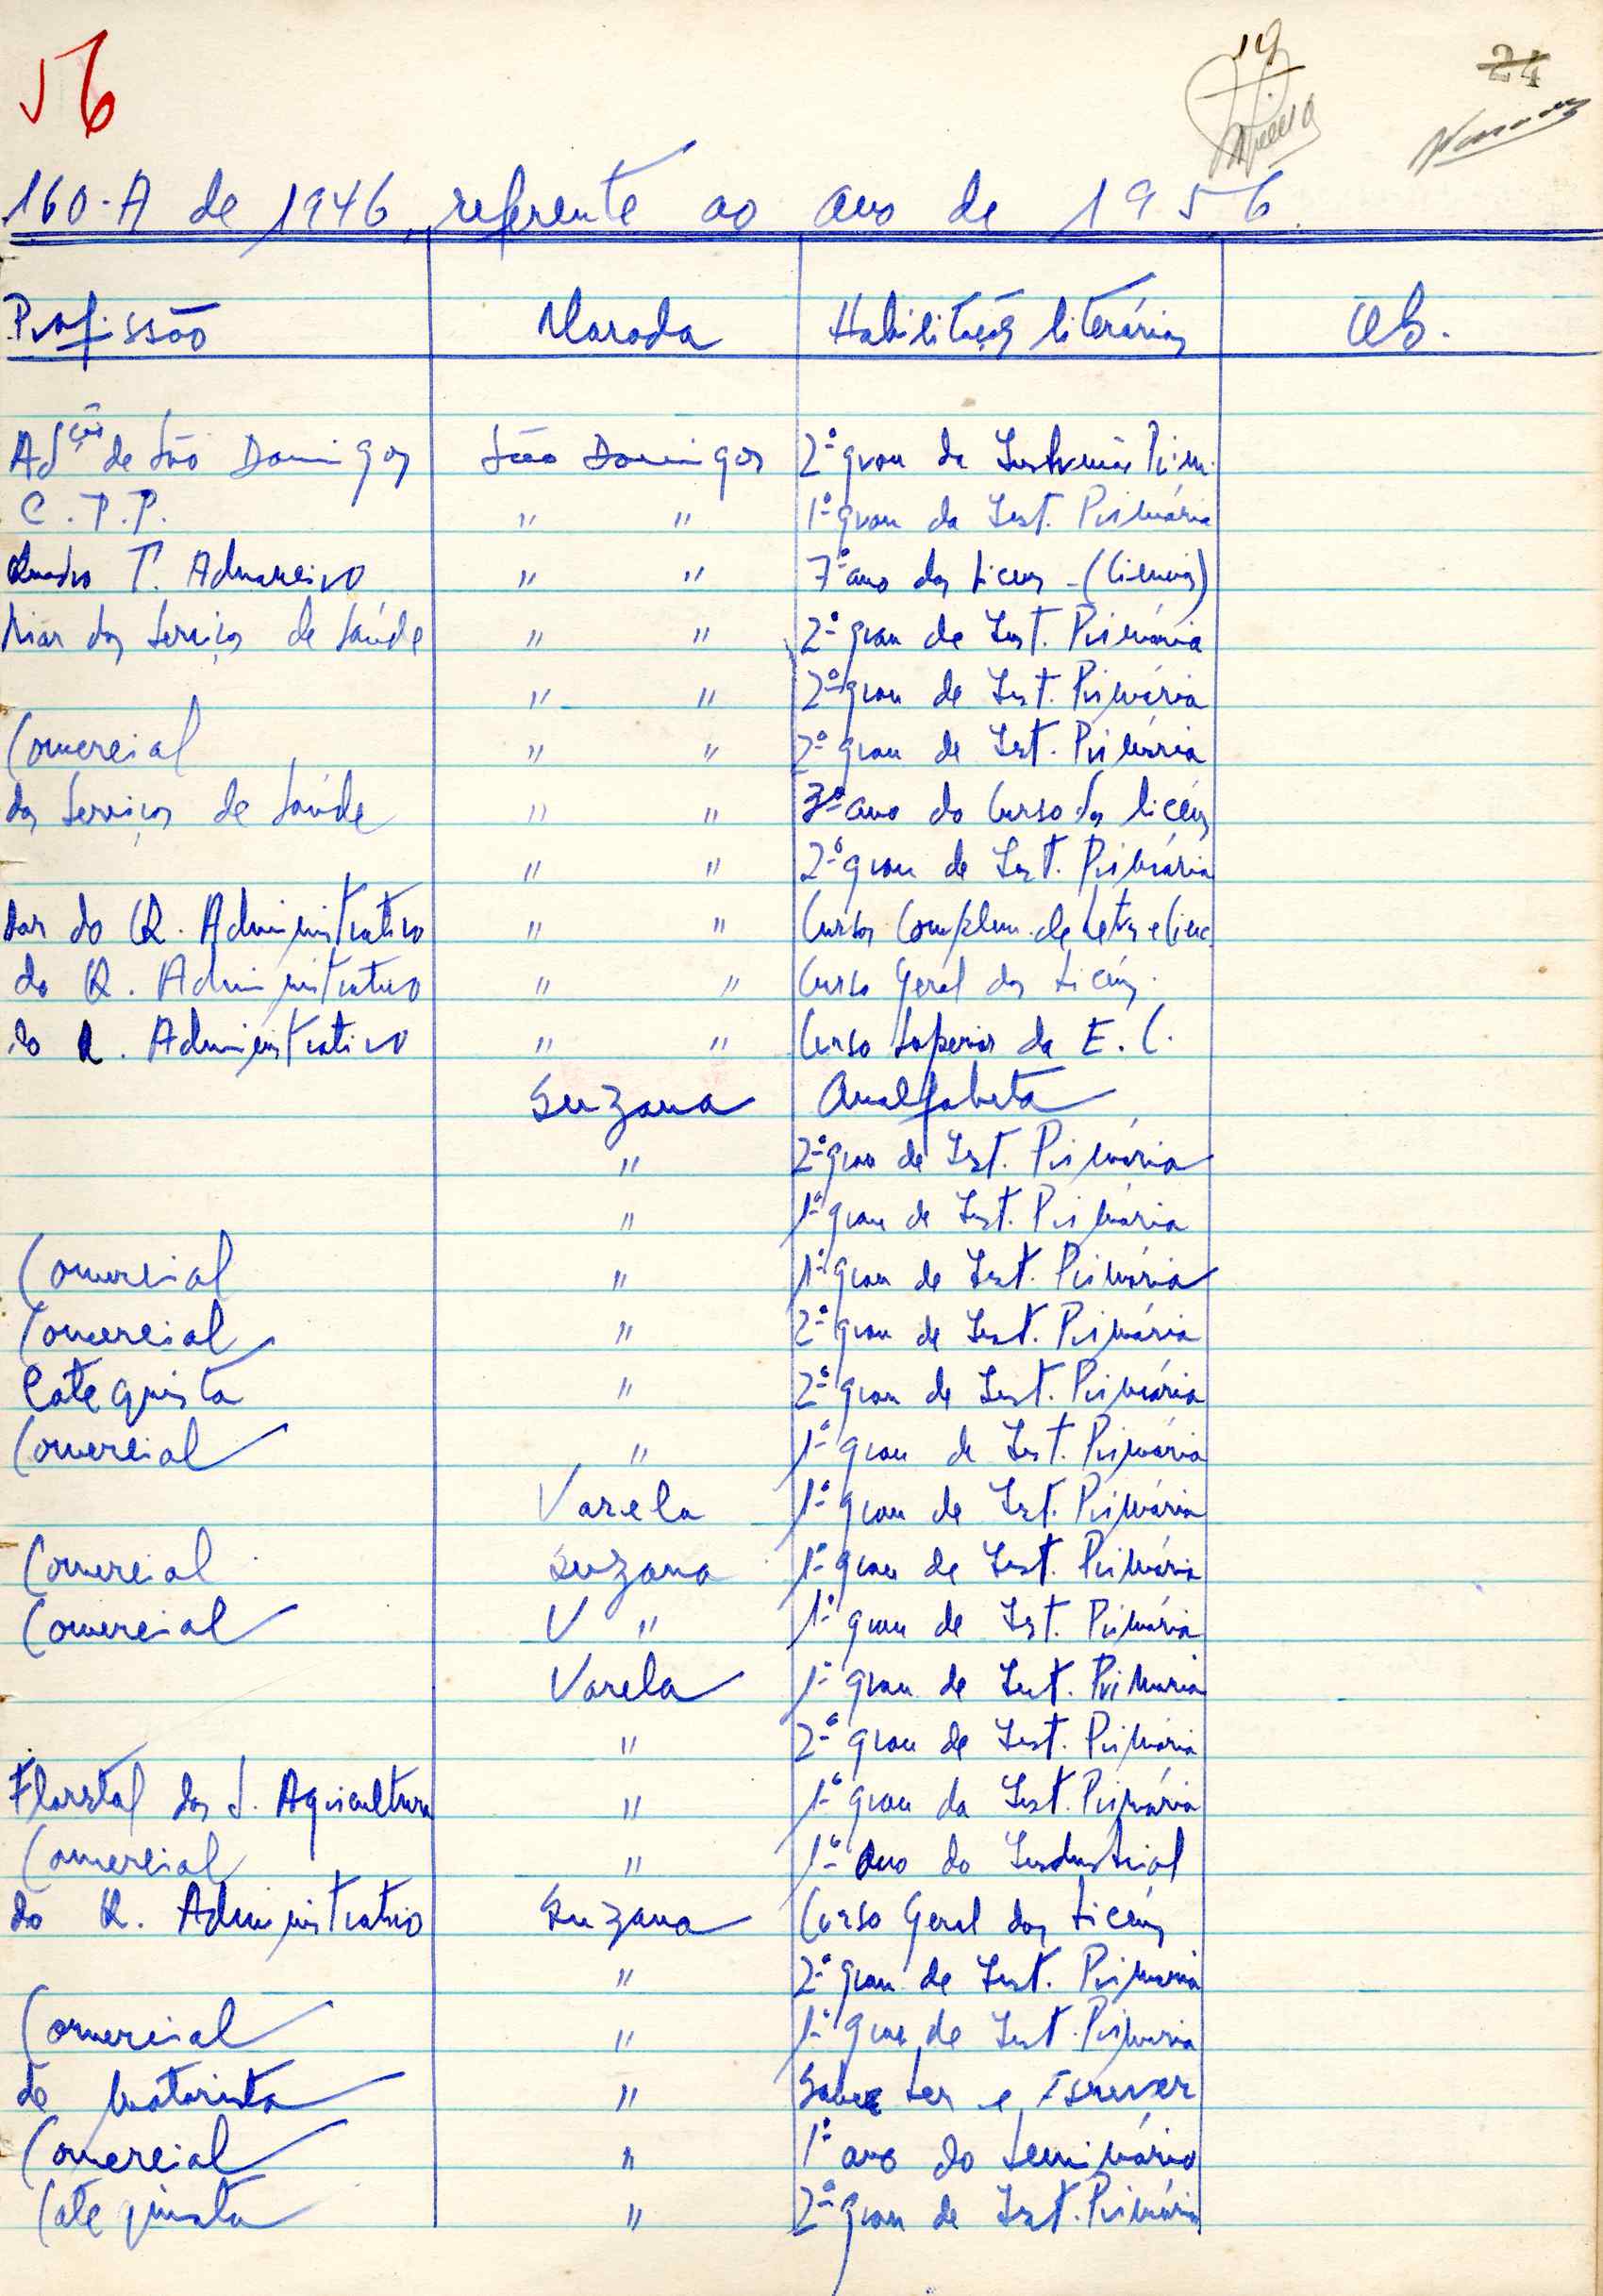 56
19
24
160-A de 1946, referente ao ano de 1956.
Profissão Morada Habilitações literárias Obs.
Adção de São Domingos São Domingos 2º grau da Instrução Prim.
C.T.P. " " 1º grau da Inst. Primária
Quadro T. Aduaneiro " " 7º ano dos Liceus - (Ciencias)
liar dos Serviços de Saúde " " 2º grau de Inst. Primária
" " 2º grau de Inst. Primária
Comercial " " 2º grau de Inst. Primária
dos Serviços de Saúde " " 3º ano do Curso dos licéus
" " 2º grau de Inst. Primária
dor do Q. Administrativo " " Cursos Complem. de Letras e Cienc.
do Q. Administrativo " " Curso Geral dos Licéus.
do Q. Administrativo " " Curso Superior da E. C.
Suzana Analfabeta
" 2º grau de Inst. Primária
" 1º grau de Inst. Primária
Comercial " 1º grau de Inst. Primária
Comercial " 2º grau de Inst. Primária
Catequista " 2º grau de Inst. Primária
Comercial " 1º grau de Inst. Primária
Varela 1º grau de Inst. Primária
Comercial Suzana 1º grau de Inst. Primária
Comercial V " 1º grau de Inst. Primária
Varela 1º grau de Inst. Primaria
" 2º grau de Inst. Primária
Florestal dos S. Agricultura " 1º grau da Inst. Primária
Comercial " 1º Ano do Industrial
do Q. Administrativo Suzana Curso Geral dos Licéus
" 2º grau de Inst. Primaria
Comercial " 1º grau de Inst. Primaria
de Motorista " Sabe Ler e Escrever
Comercial " 1º ano do Seminário
Catequista " 2º grau de Inst. Primária